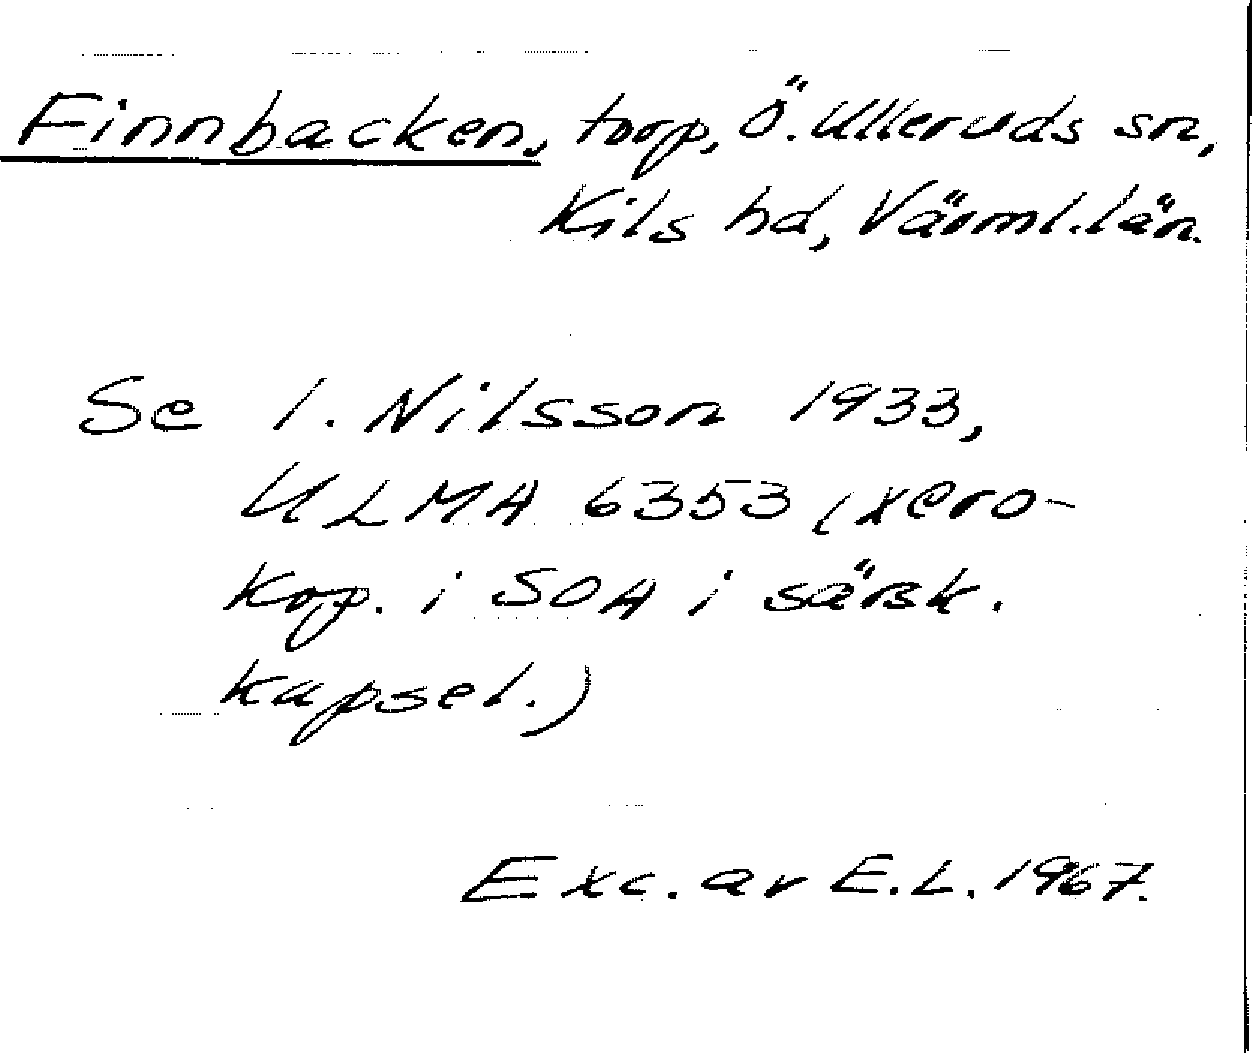 Finnbacken, torp, Ö. Ulleruds sn,
Kils hd, Värml. län.
Se I. Nilsson 1933,
ULMA 6353 (xero-
kop. i SOA i särsk.
kapsel.)
Exc. av E.L. 1967.